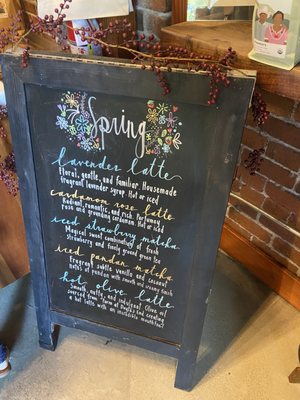 Spring
lavender latte
Floral, gentle, and familiar. Housemade
fragrant lavender syrup. Hot or iced
cardamom rose latte
Radiant, romantic, and rich. Perfumey
rose and grounding cardamom. Hot or iced
iced strawberry matcha
Magical sweet combination of fresh
strawberry and finely ground green tea
iced pandan matcha
Fragrant, subtle, vanilla and coconut
notes of pandan with smooth and matcha
hot olive latte
Smooth, nutty, and indulgent. Olive oil
sourced from creating
a hot latte with an incredible mouthfeel